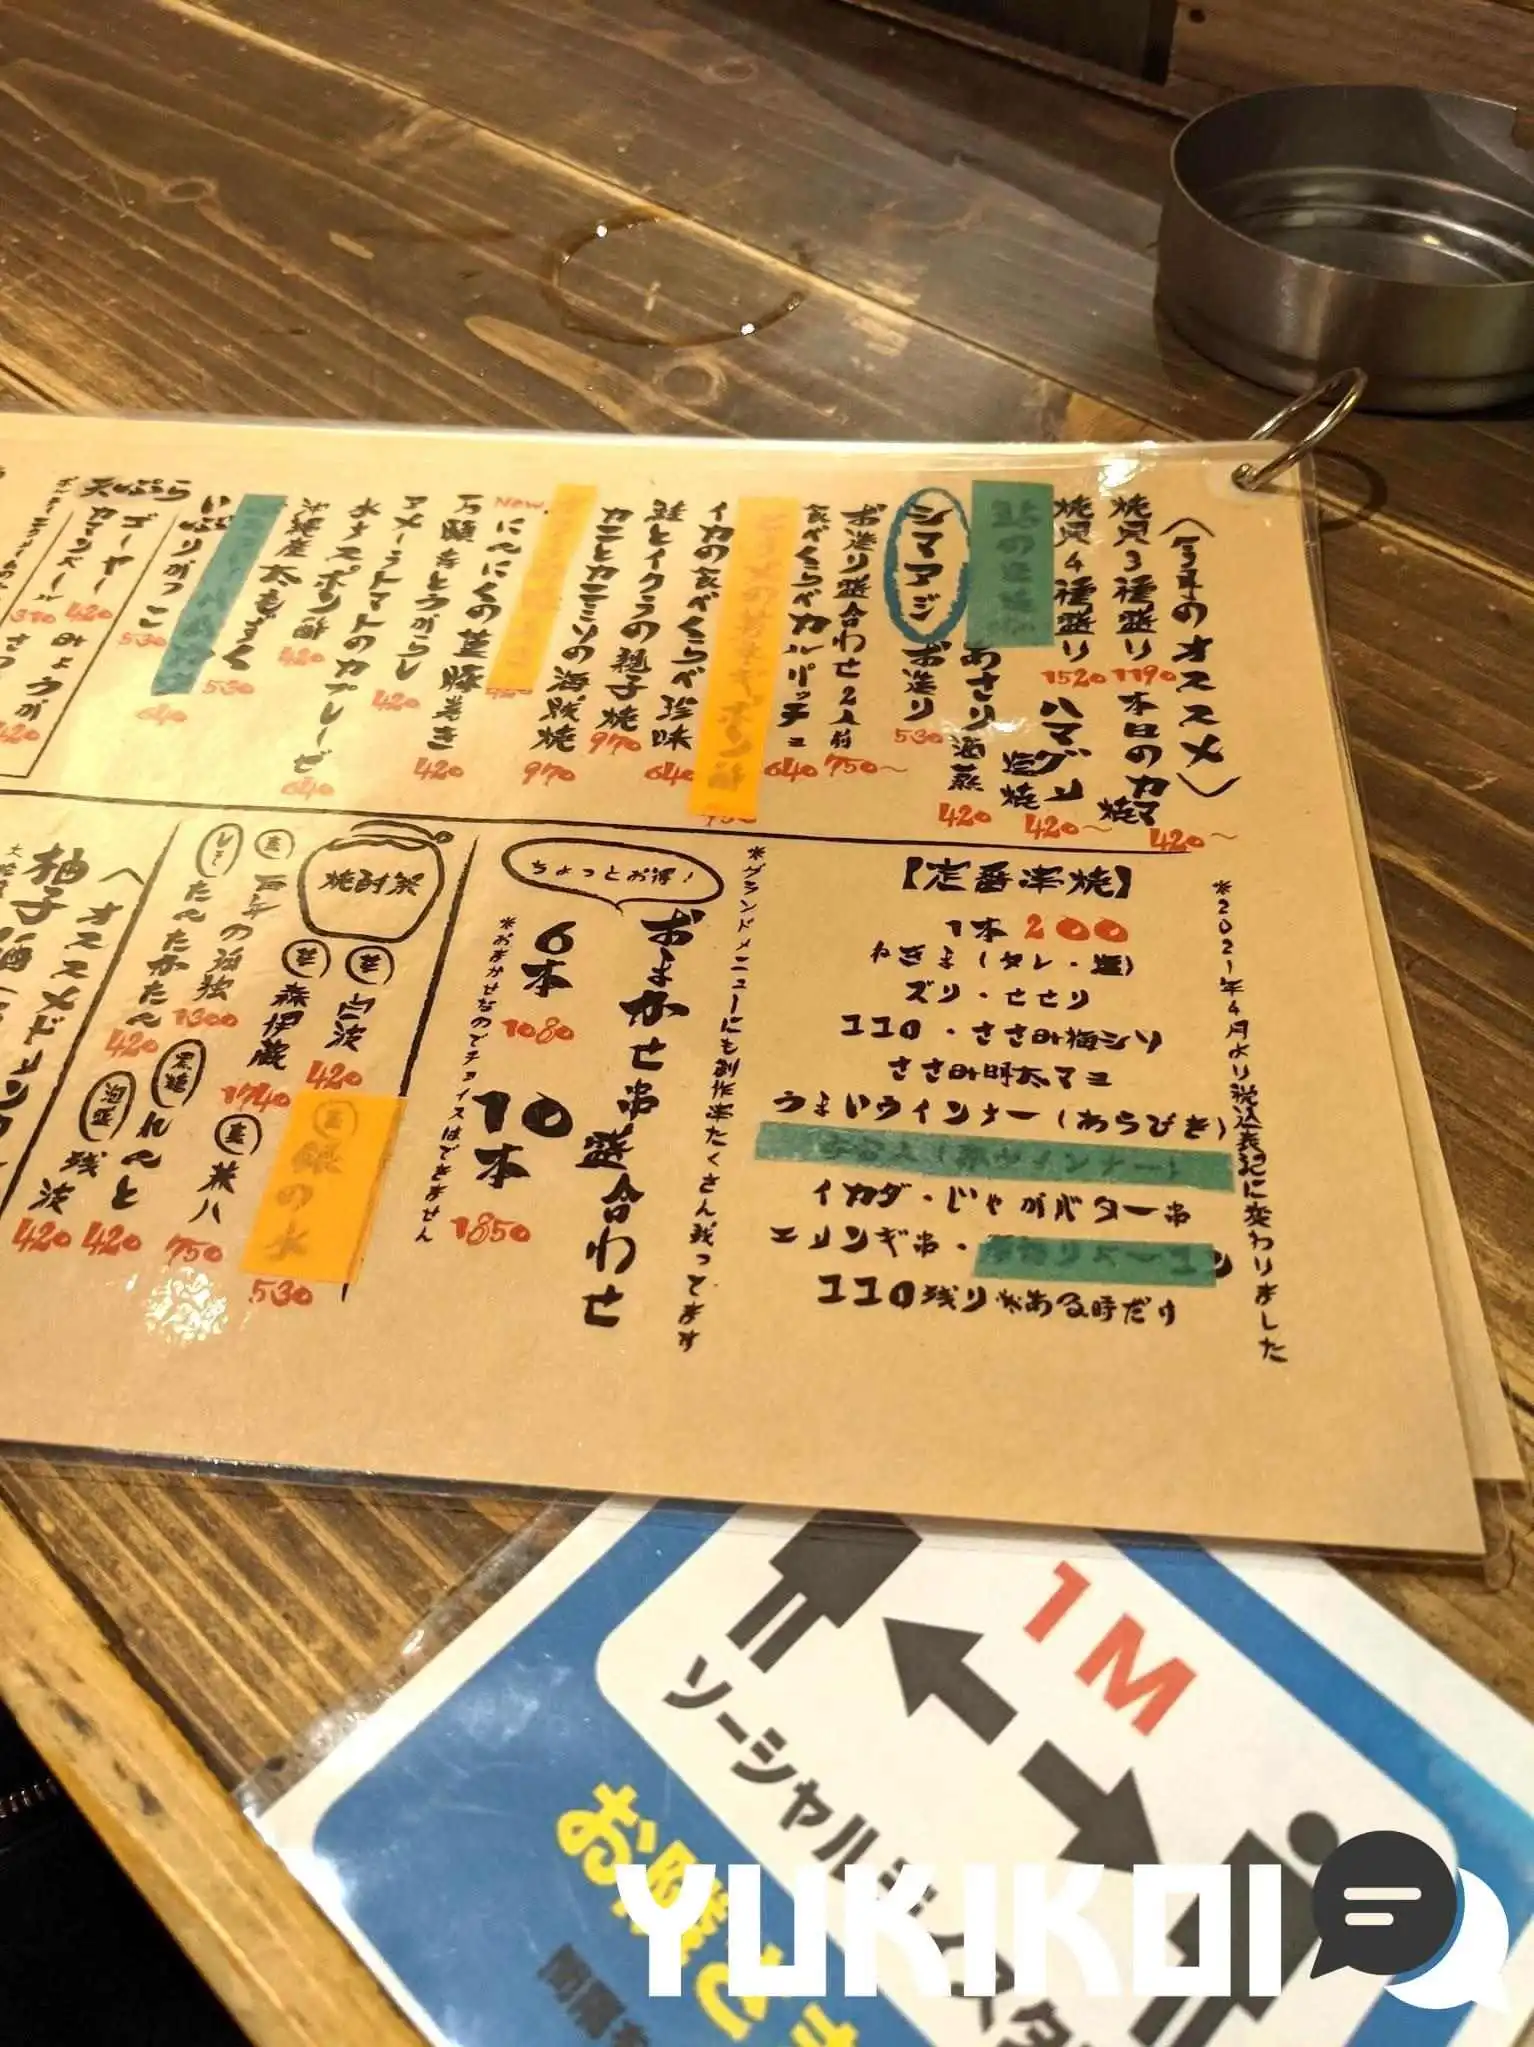 〈今月のオススメ〉
焼貝3種盛り 1190
本日のカマ焼 420〜
焼貝4種盛り 1520
ハマグリ塩焼 420〜
あさり海燕 420
シマアジお造り 530
お造り盛合わせ2人前 750〜
食べくらべカルパッチョ 640
イカの食べくらべ珍味 640
鮭とイクラの親子焼 970
カニとカニミソの海賊焼 970
New.
にんにくの芽豚巻き 420
万願寺とうがらし 420
アメーラトマトのカプレーゼ 640
水ナスポン酢 420
沖縄産太もずく 530
640
いぶりがっこ 530
天ぷら
ゴーヤー 420
みょうが 420
カマンベール 370
※2021年4月より税込表記に変わりました
【定番串焼】
1本 200
ねぎま(タレ・塩)
ズリ・せせり
ココロ・ささみ梅シソ
ささみ明太マヨ
うまいウインナー(あらびき)
イカダ・じゃがバター串
エリンギ串・
ココロ残り※ある時だけ
※グランドメニューにも創作串たくさん残ってます
おまかせ串盛合わせ
ちょっとお得!
6本 1080
10本 1850
※おまかせなのでチョイスはできません
焼酎祭
芋 白波 420
芋 森伊蔵 1740
麦 銀の水 530
麦 兼八 750
麦 百年の孤独 1300
しそ たんたかたん 420
黒糖 れんと 420
泡盛 残波 420
〈オススメドリンク
柚子酒
1M
ソーシャルディスタ
お隣さま
間隔を
YUKIKOI